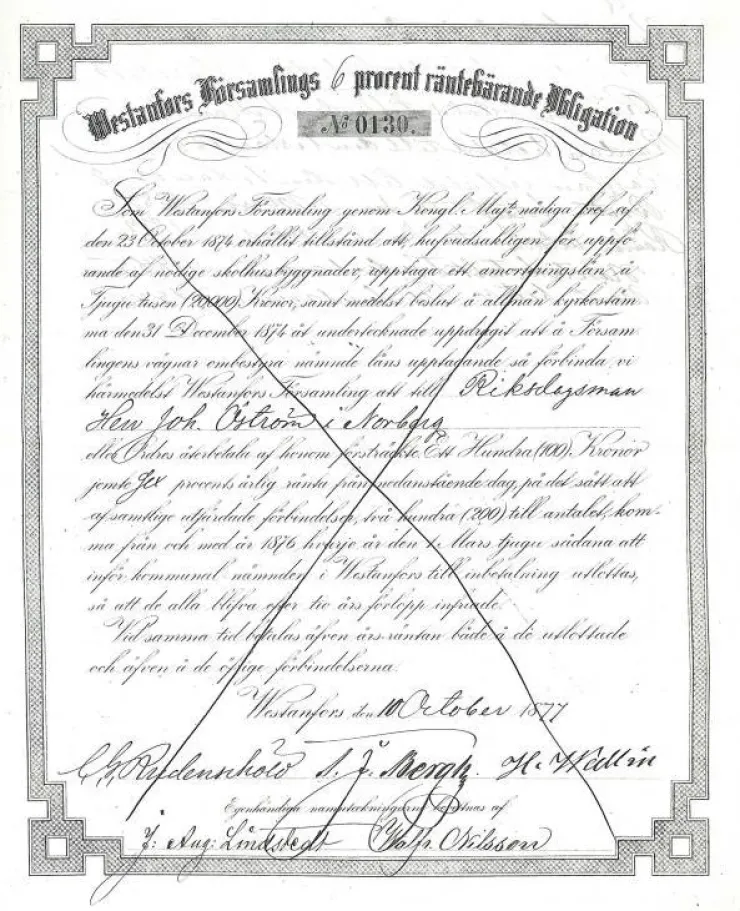 Westanfors Församlings 6 procent räntebärande Obligation
No 0130.
Som Westanfors Församling genom Kongl. Majts nådiga bref af
den 23 October 1874 erhållit tillstånd att, hufvudsakligen för uppfö-
rande af nödige skolhusbyggnader, upptaga ett amorteringslån å
Tjugu tusen (20,000) Kronor, samt medelst beslut å allmän kyrkostäm
ma den 31 December 1874 åt undertecknade uppdragit att å Försam-
lingens vägnar ombestyra nämnde låns upptagande så förbinda vi
härmedelst Westanfors Församling att till Riksdagsman
Herr Joh. Öström i Norberg
eller Ordres återbetala af honom försträckte Ett Hundra (100) Kronor
jemte Sex procents årlig ränta från nedanstående dag, på det sätt att
af samtlige utfärdade förbindelser, två hundra (200) till antalet, kom-
ma från och med år 1876 hvarje år den 1 Mars tjugu sådana att
inför kommunal nämnden i Westanfors till inbetalning utlottas,
så att de alla blifva efter tio års förlopp infriade.
Vid samma tid betalas äfven års räntan både å de utlottade
och äfven å de öfrige förbindelserna.
Westanfors den 10 October 1877
C G Rudenschöld A. J. Bergh. H. Wallin
Egenhändiga namnteckningarne bevittnas af
J: Aug: Lindstedt Walfr. Nilsson